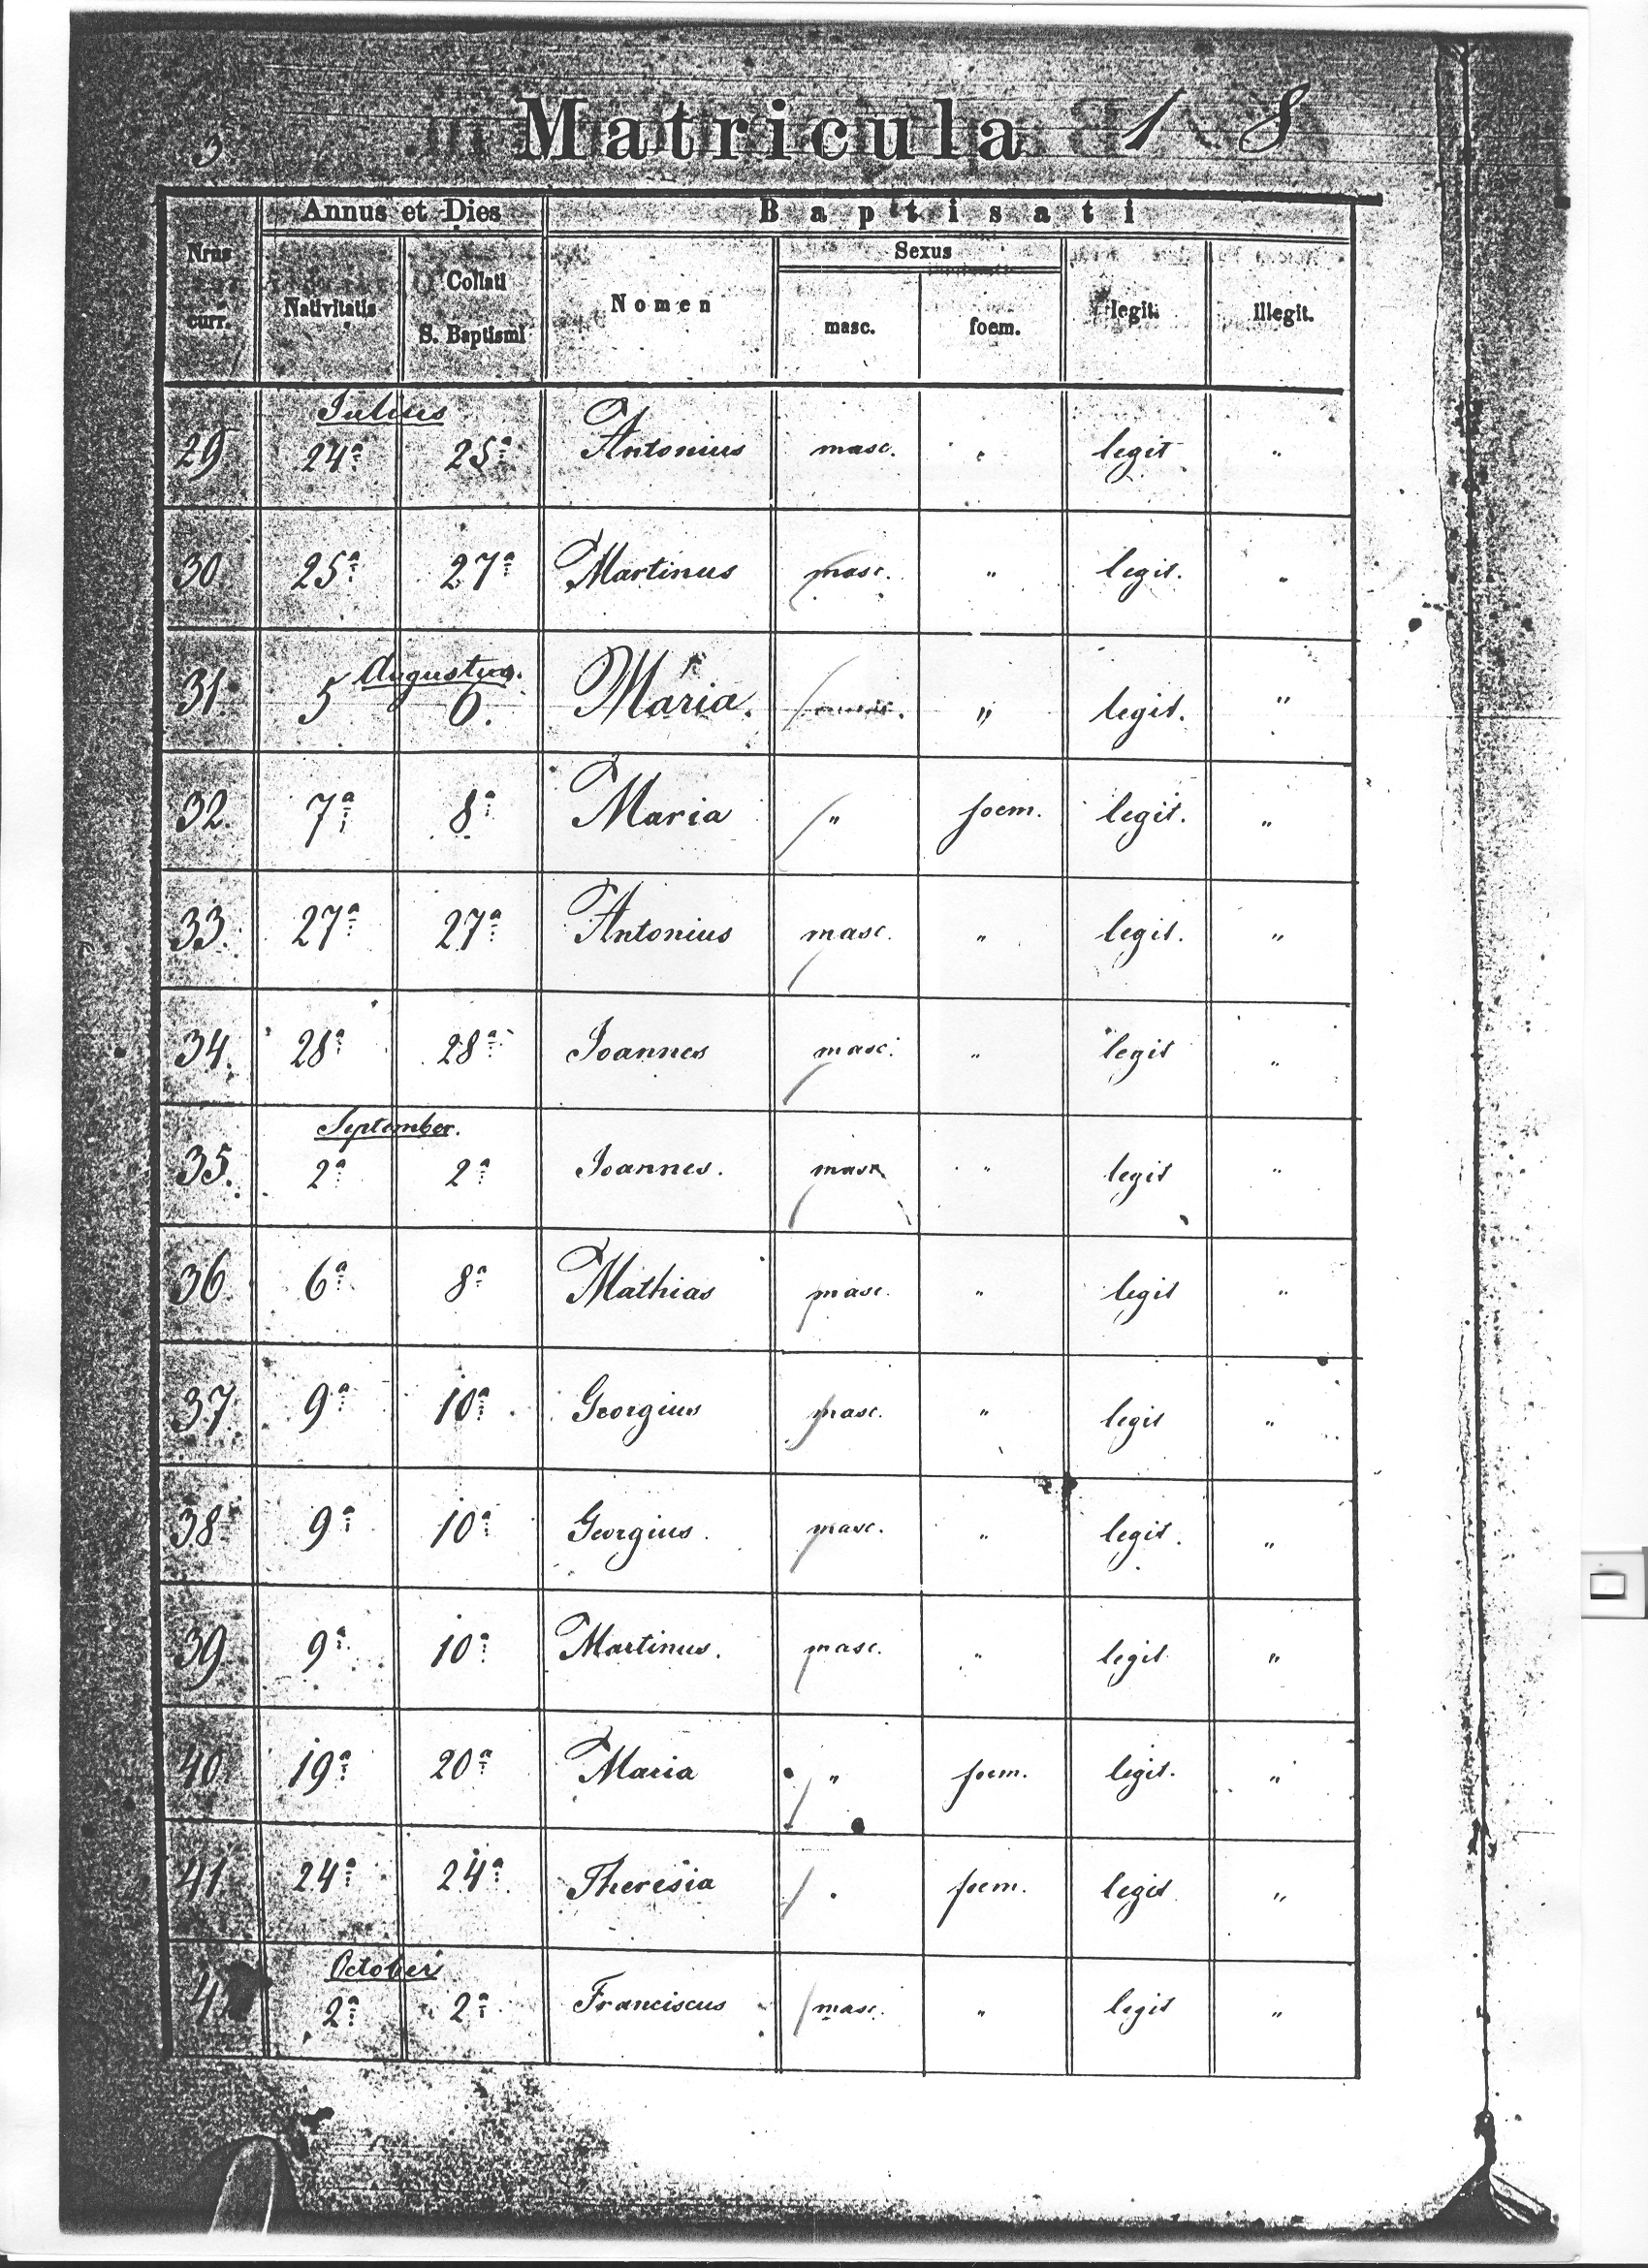 3 Matricula 1 8
Annus et Dies Baptisati
Nrus curr. Nativitatis Collati S. Baptismi Nomen Sexus legit. illegit.
masc. foem.
Julius
29 24ª 25ª Antonius masc. " legit "
30 25ª 27ª Martinus masc. " legit. "
Augustus.
31. 5 6. Maria. " legit. "
32. 7ª 8ª Maria " foem. legit. "
33. 27ª 27ª Antonius masc. " legit. "
34. 28ª 28ª Joannes masc. " legit "
September.
35. 2ª 2ª Joannes. masc " legit "
36 6ª 8ª Mathias masc. " legit "
37 9ª 10ª Georgius masc. " legit "
38 9ª 10ª Georgius. masc. " legit. "
39 9ª 10ª Martinus. masc. " legit "
40 19ª 20ª Maria " foem. legit. "
41 24ª 24ª Theresia . foem. legit "
October
4 2ª 2ª Franciscus masc. " legit "